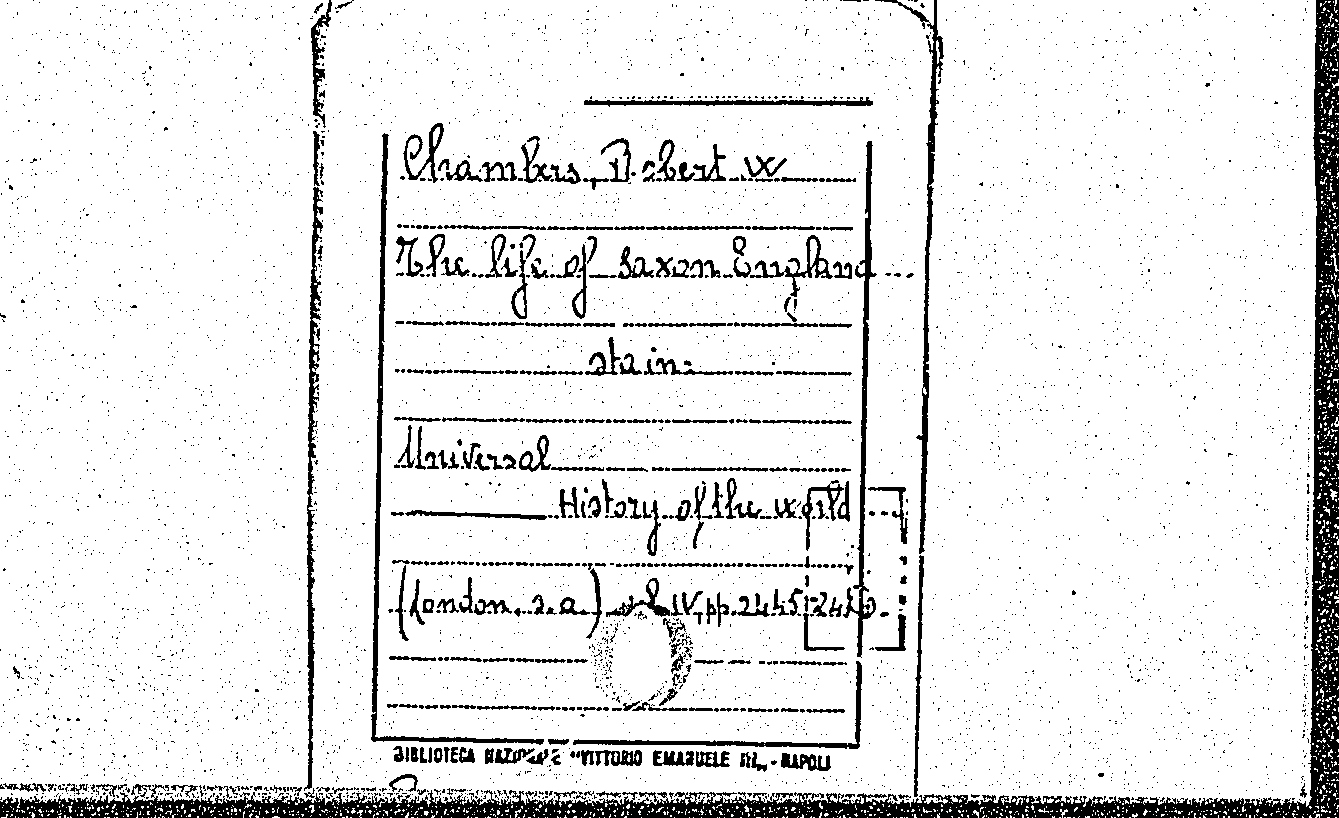 Chambers, Robert W
The life of saxon England ...
sta in:
Universal
History of the world ...
(London, s.a.) vol IV, pp. 2445-
BIBLIOTECA NAZIONALE "VITTORIO EMANUELE III" - NAPOLI